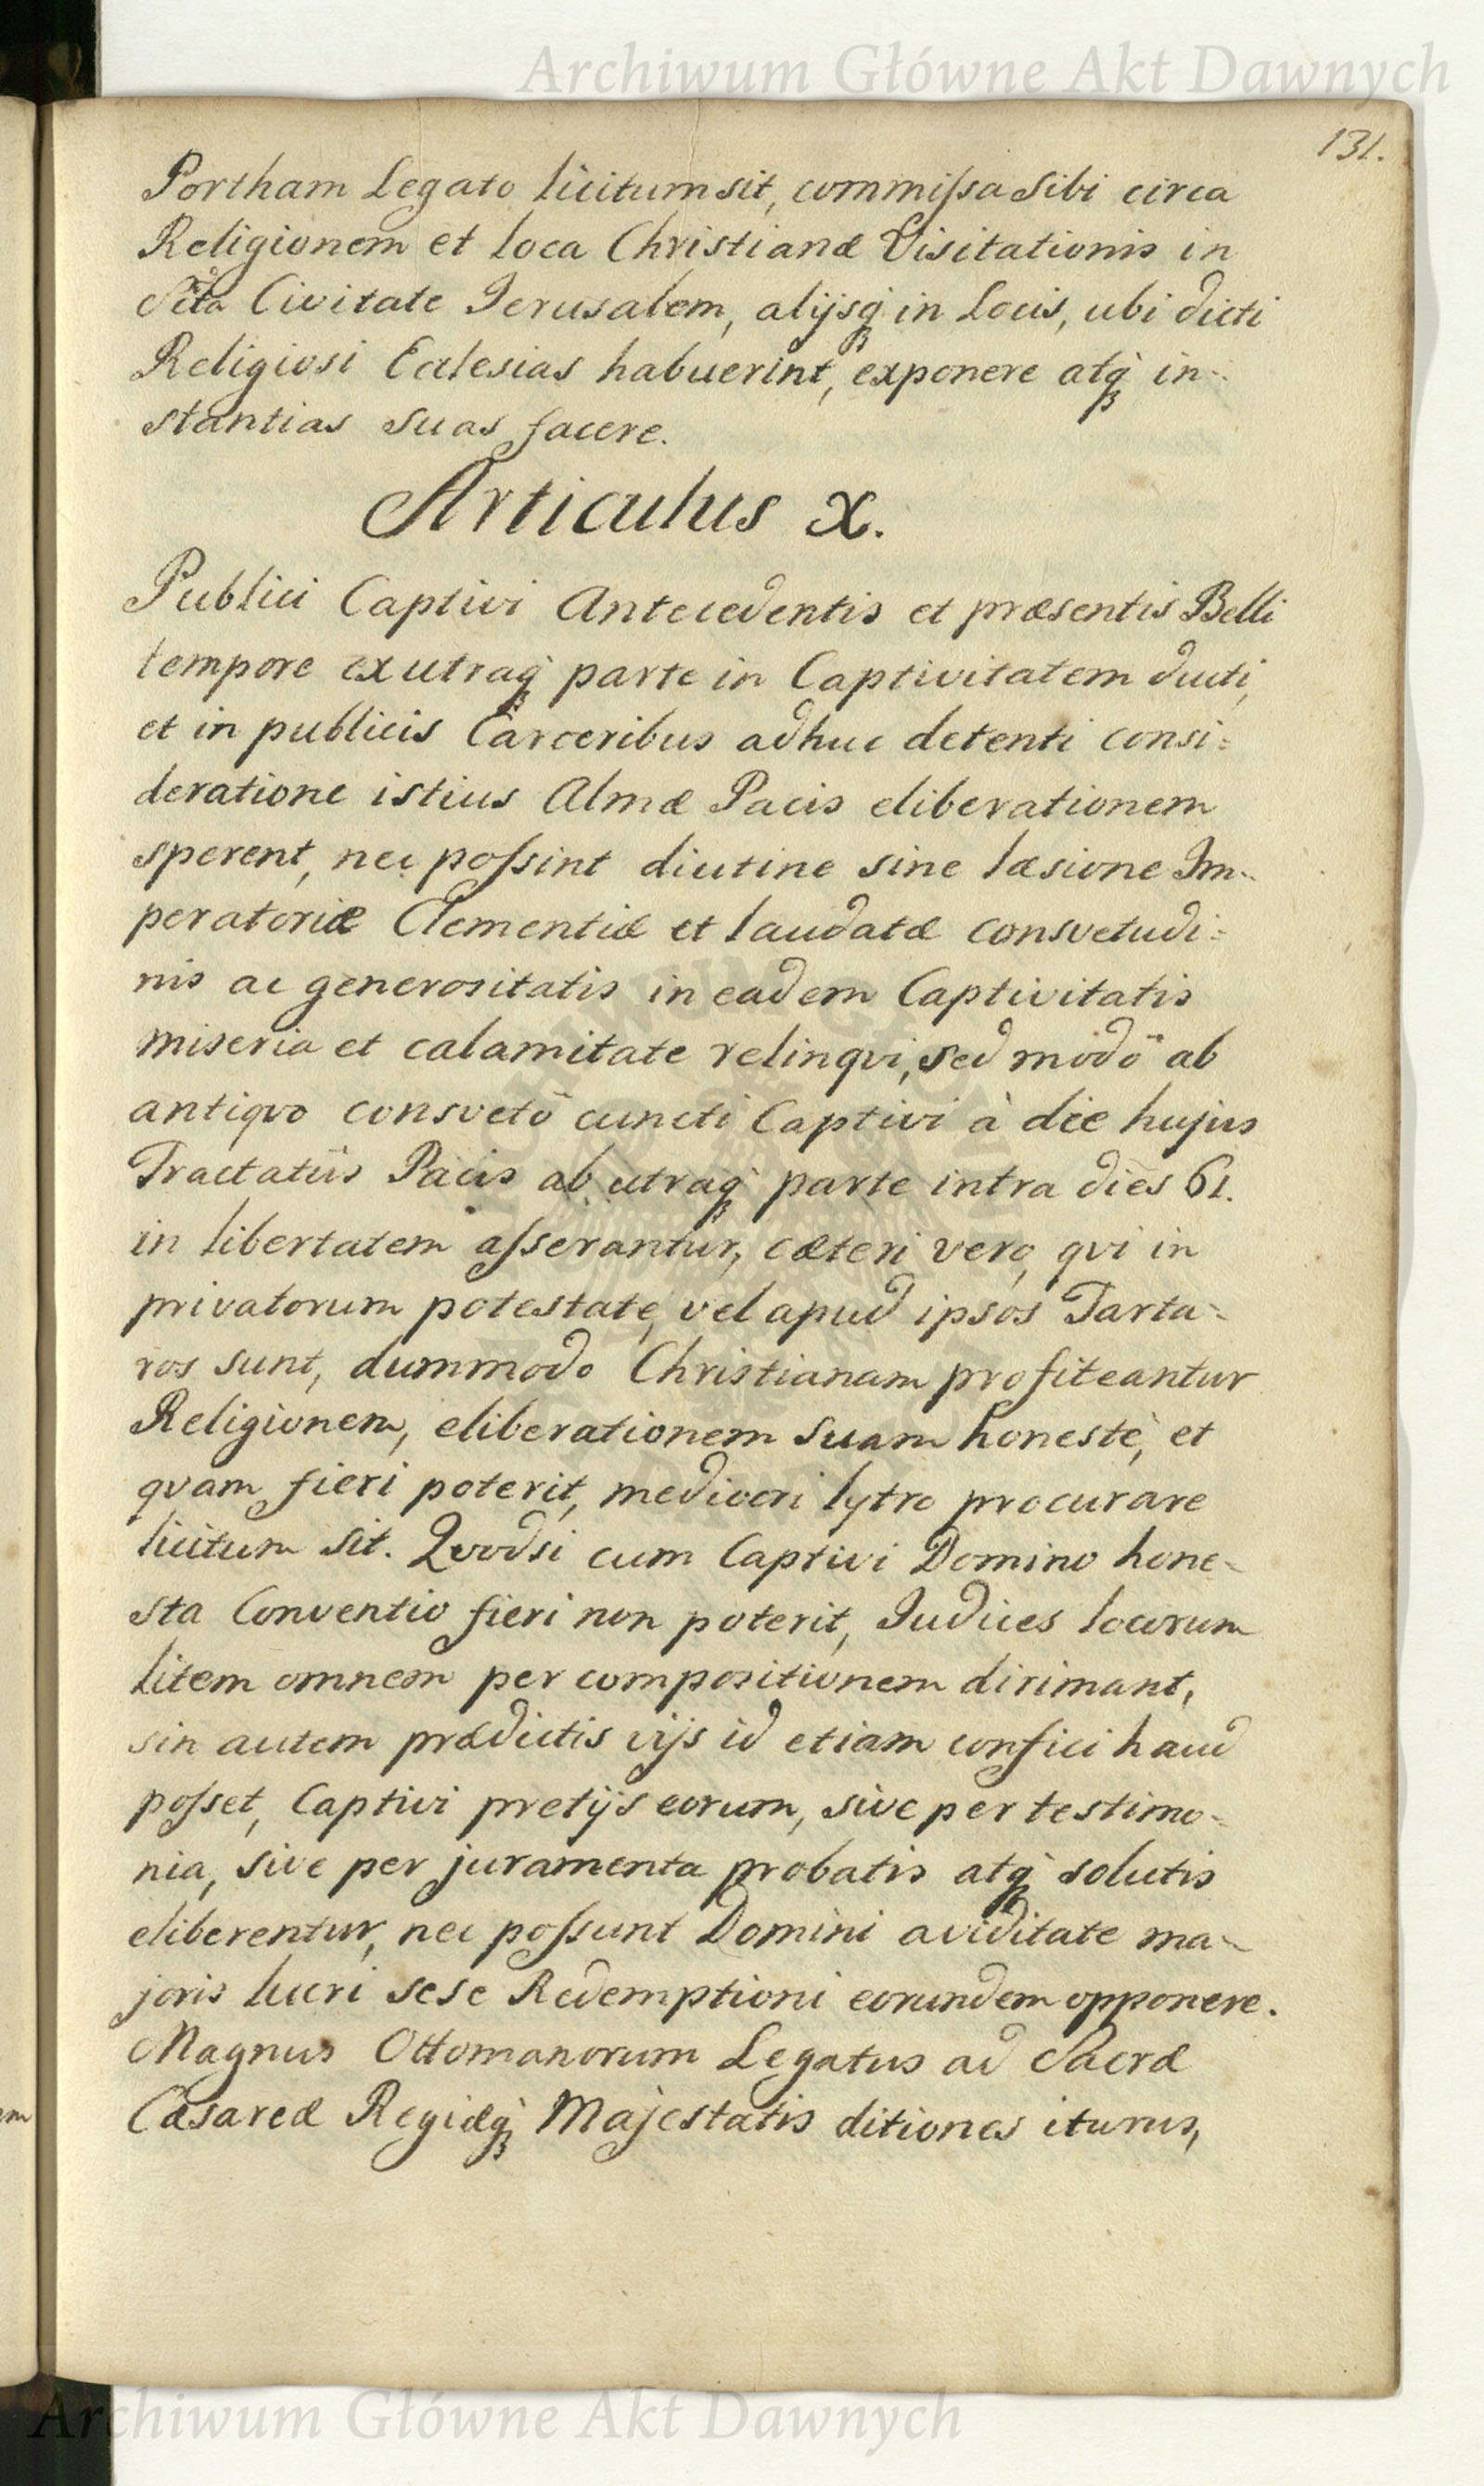 Archiwum Główne Akt Dawnych
131.
Portham Legato licitum sit, commiſsa Sibi circa
Religionem et loca Christianæ Visitationis in
Sctã Civitate Jerusalem, alijsq́ in Locis, ubi dicti
Religiosi Ecclesias habuerint, exponere atq́ in-
stantias suas facere.
Articulus X.
Publici Captivi Antecedentis et præsentis Belli
tempore ex utraq́ parte in Captivitatem ducti,
et in publicis Carceribus adhuc detenti consi=
deratione istius Almæ Pacis eliberationem
sperent, nec poſsint diutine sine læsione Im-
peratoriæ Clementiæ et laudatæ consvetudi=
nis ac generositatis in eadem Captivitatis
miseria et calamitate relinqvi, sed modô ab
antiqvo consvetô cuncti Captivi à die hujus
Tractatûs Pacis ab utraq́ parte intra dies 61.
in libertatem aſserantur, cæteri vero, qvi in
privatorum potestate, vel apud ipsos Tarta-
ros sunt, dummodo Christianam profiteantur
Religionem, eliberationem suam honestè, et
qvam fieri poterit, mediocri lytro procurare
licitum sit. Qvodsi cum Captivi Domino hone-
sta Conventio fieri non poterit, Judices locorum
litem omnem per compositionem dirimant,
sin autem prædictis vijs id etiam confici haud
poſset, Captivi pretijs eorum, sive per testimo-
nia, sive per juramenta probatis atq́ solutis
eliberentur, nec poſsunt Domini aviditate ma-
joris lucri sese Redemptioni eorundem opponere.
Magnus Ottomanorum Legatus ad Sacræ
Cæsareæ Regiæq́ Majestatis ditiones iturus,
Archiwum Główne Akt Dawnych